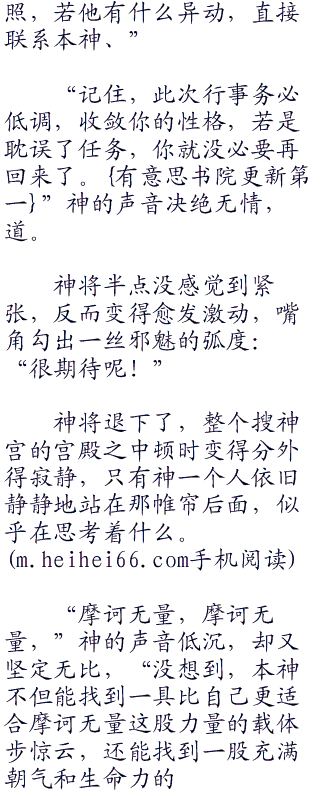 照，若他有什么异动，直接
联系本神、”
“记住，此次行事务必
低调，收敛你的性格，若是
耽误了任务，你就没必要再
回来了。{有意思书院更新第
一}”神的声音决绝无情，
道。
神将半点没感觉到紧
张，反而变得愈发激动，嘴
角勾出一丝邪魅的弧度：
“很期待呢！”
神将退下了，整个搜神
宫的宫殿之中顿时变得分外
得寂静，只有神一个人依旧
静静地站在那帷帘后面，似
乎在思考着什么。
(m.heihei66.com手机阅读)
“摩诃无量，摩诃无
量，”神的声音低沉，却又
坚定无比，“没想到，本神
不但能找到一具比自己更适
合摩诃无量这股力量的载体
步惊云，还能找到一股充满
朝气和生命力的